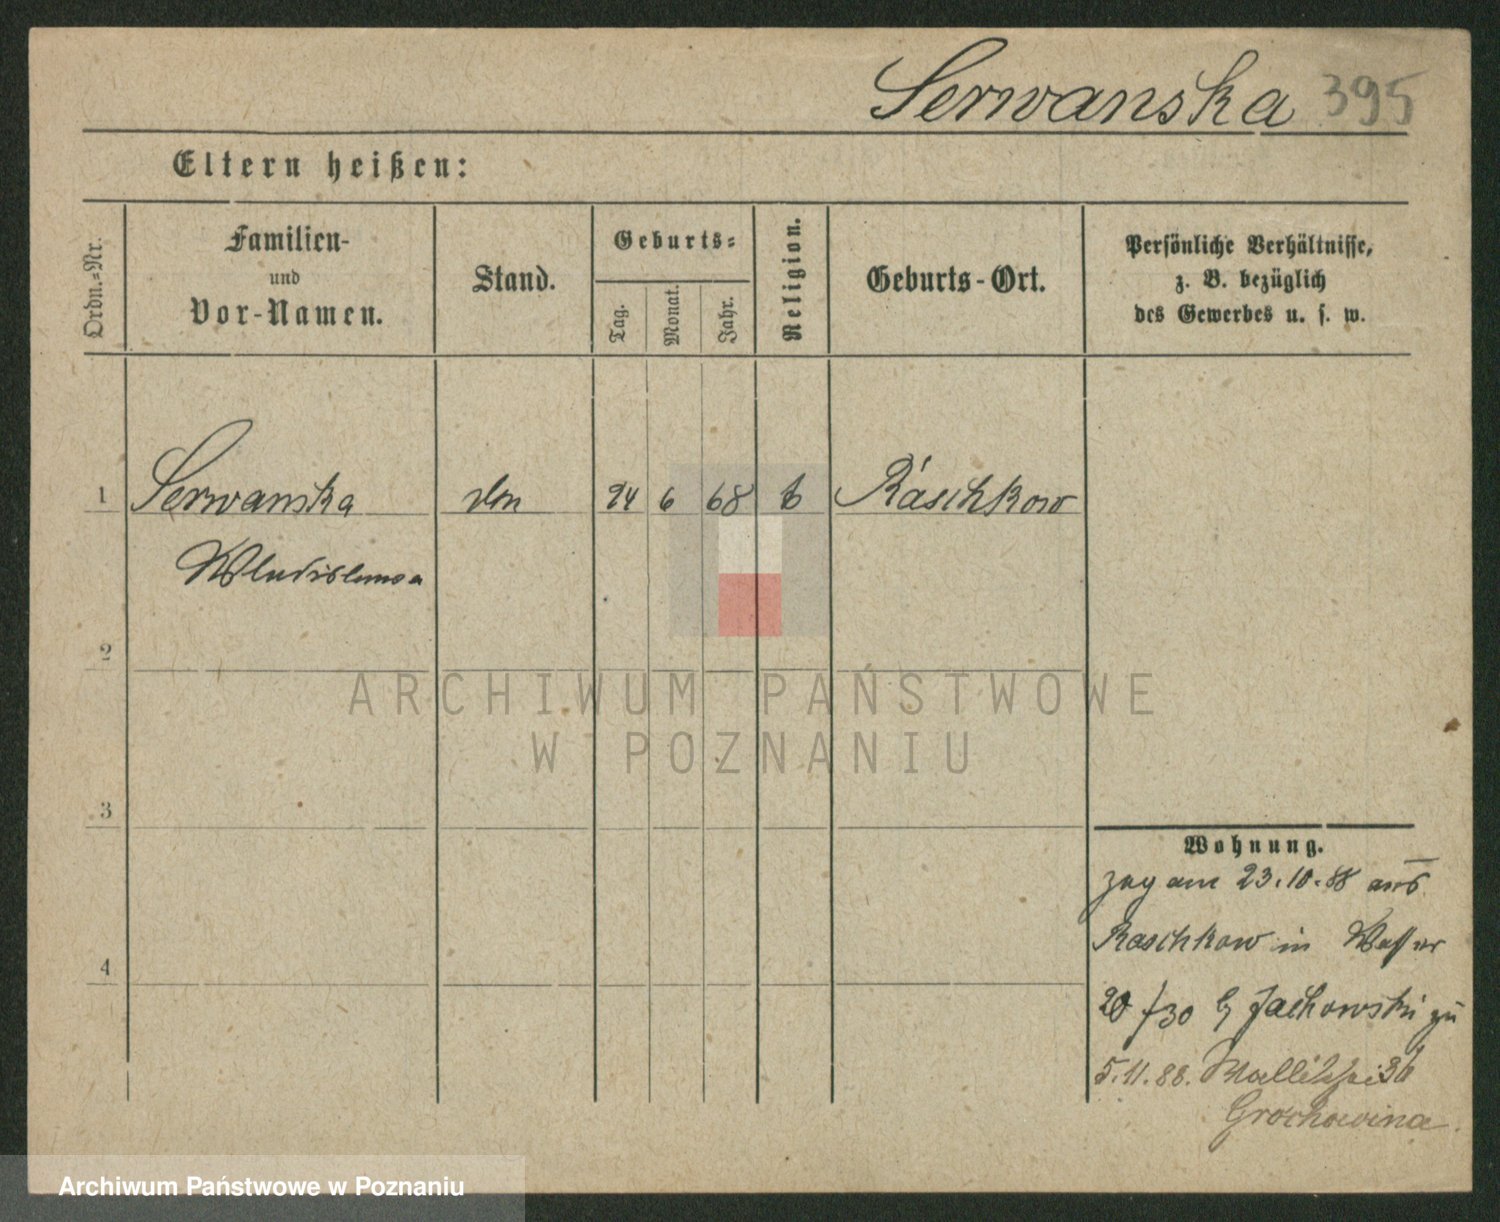 Serwanska 395
Eltern heißen:
Ordn.-Nr.
Familien-
und
Vor-Namen.
Stand.
Geburts-
Tag.
Monat.
Jahr.
Religion.
Geburts-Ort.
Persönliche Verhältnisse,
z. B. bezüglich
des Gewerbes u. s. w.
1 Serwanska 24 6 68 Raschkow
Wladislawa
2
3
4
ARCHIWUM PAŃSTWOWE
W POZNANIU
Wohnung.
zog am 23.10.88 aus
Raschkow in
20/30 Jachowski zu
5.11.88. Wallischei 36
Grochowina
Archiwum Państwowe w Poznaniu